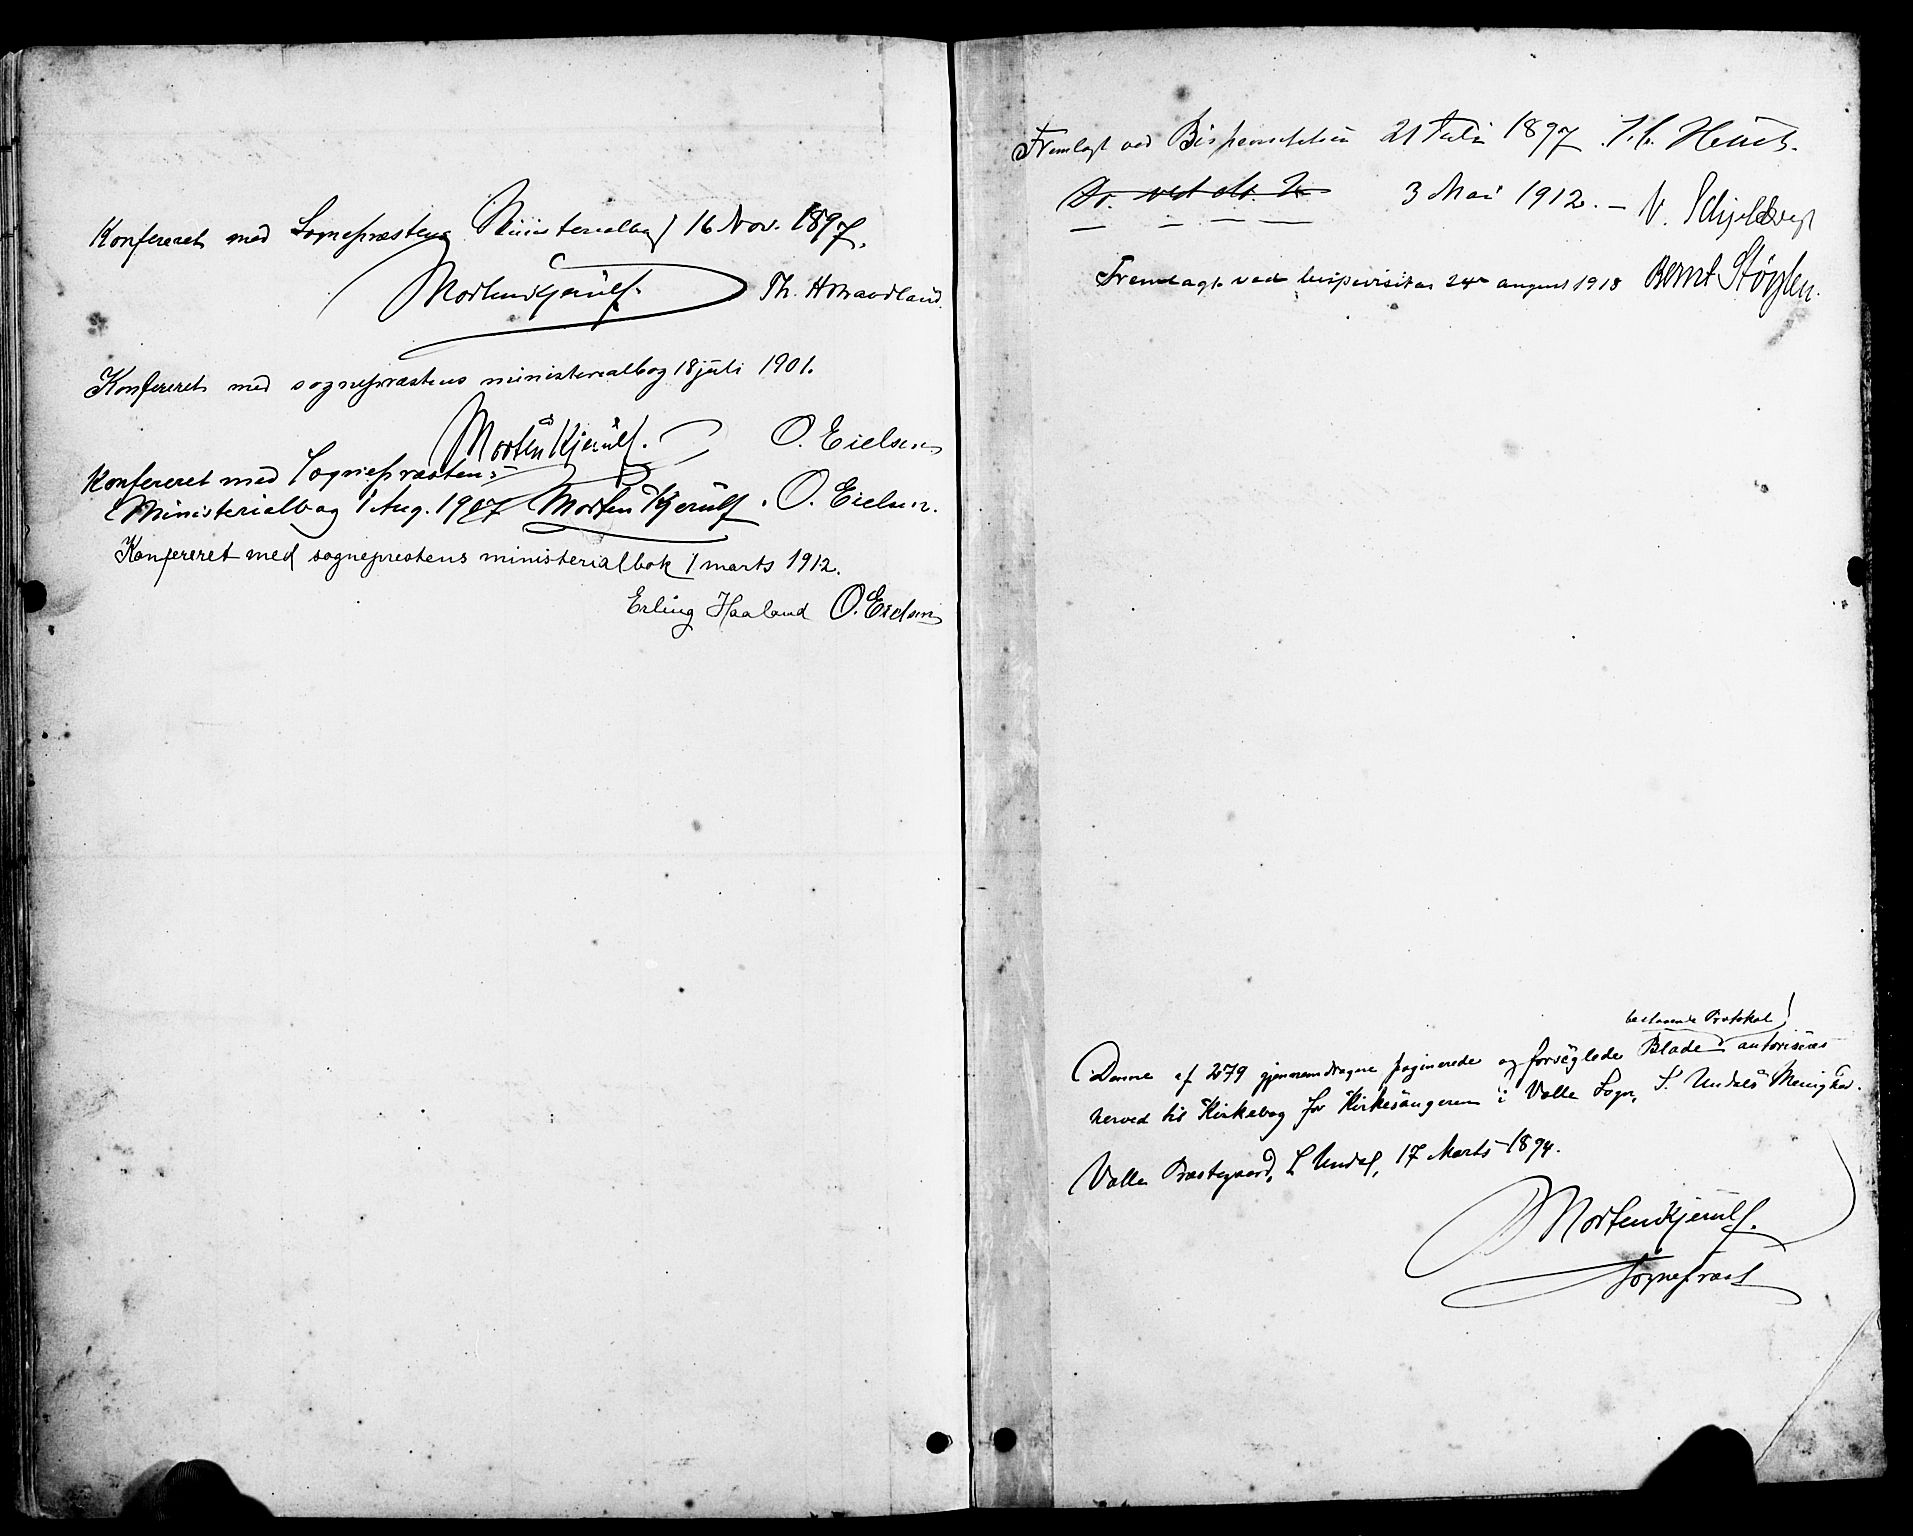 Konfereret med Sognepræstens Ministerialbog 16 Nov. 1897.
Morten Kjerulf. Th. H. Strandland
Konfereret med sognepræstens ministerialbog 18 juli 1901.
Morten Kjerulf. O. Eielsen
Konfereret med Sognepræstens
Ministerialbog 1 Aug. 1907 Morten Kjerulf. O. Eielsen.
Konfereret med sogneprestens ministerialbok 1 marts 1912.
Erling Haaland O. Eielsen
Fremlagt ved Bispevisitasen 21 Juli 1897. J. C. Heuch.
3 Mai 1912. – N. Schjelderup
Fremlagt ved bispevisitas 24de august 1918 Bernt Støylen.
bestaaende Protokol
Denne af 279 gjennemdragne paginerede og forseglede Blade autoriseres
herved til Kirkebog for Kirkesangeren i Valle Sogn, S. Undals Menighed.
Valle Præstegaard, S. Undal, 17 Marts 1894.
Morten Kjerulf.
Sognepræst